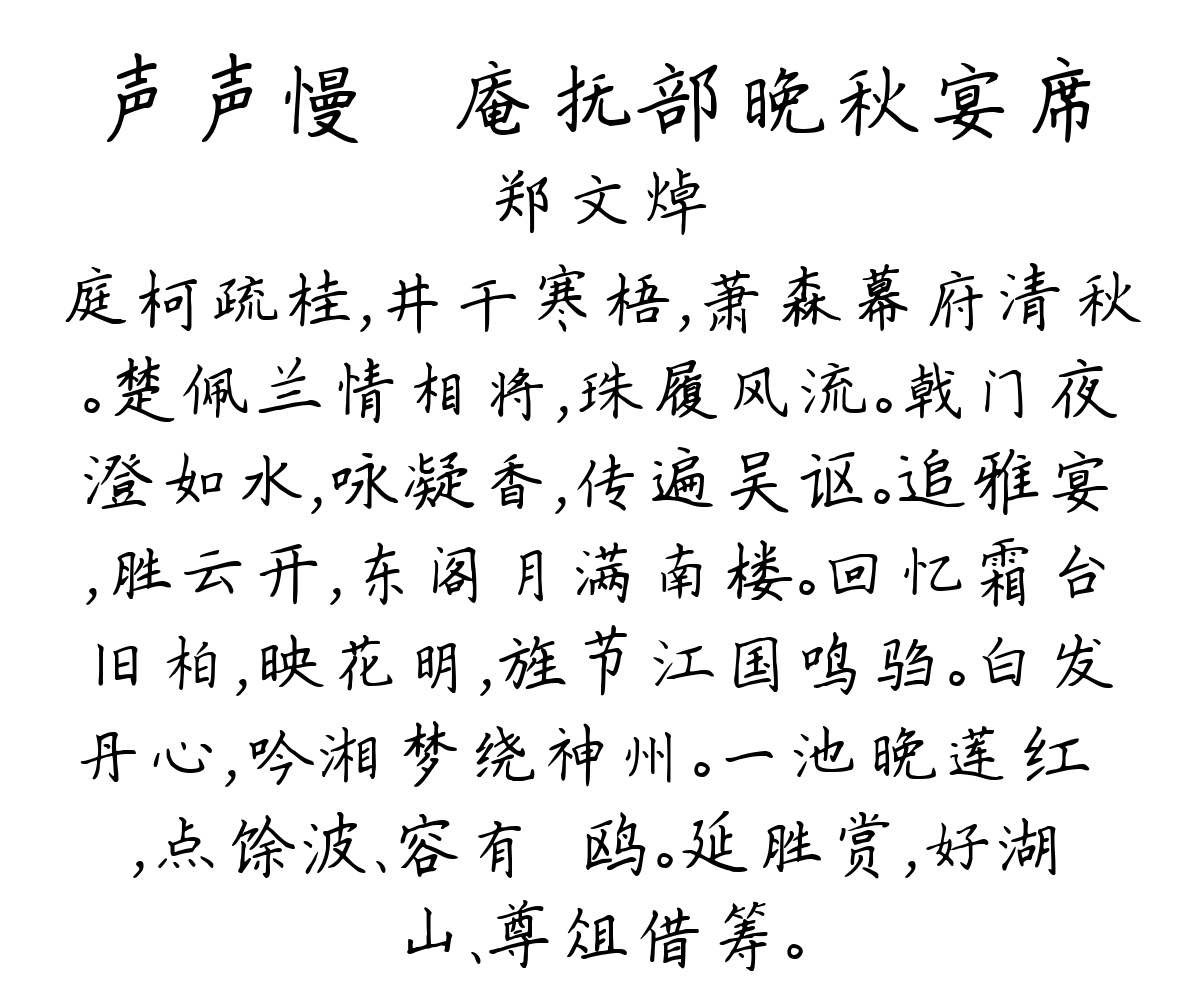 声声慢　庵抚部晚秋宴席
郑文焯
庭柯疏桂,井干寒梧,萧森幕府清秋
。楚佩兰情相将,珠履风流。戟门夜
澄如水,咏凝香,传遍吴讴。追雅宴
,胜云开,东阁月满南楼。回忆霜台
旧柏,映花明,旌节江国鸣驺。白发
丹心,吟湘梦绕神州。一池晚莲红
,点馀波、容有　鸥。延胜赏,好湖
山、尊俎借筹。